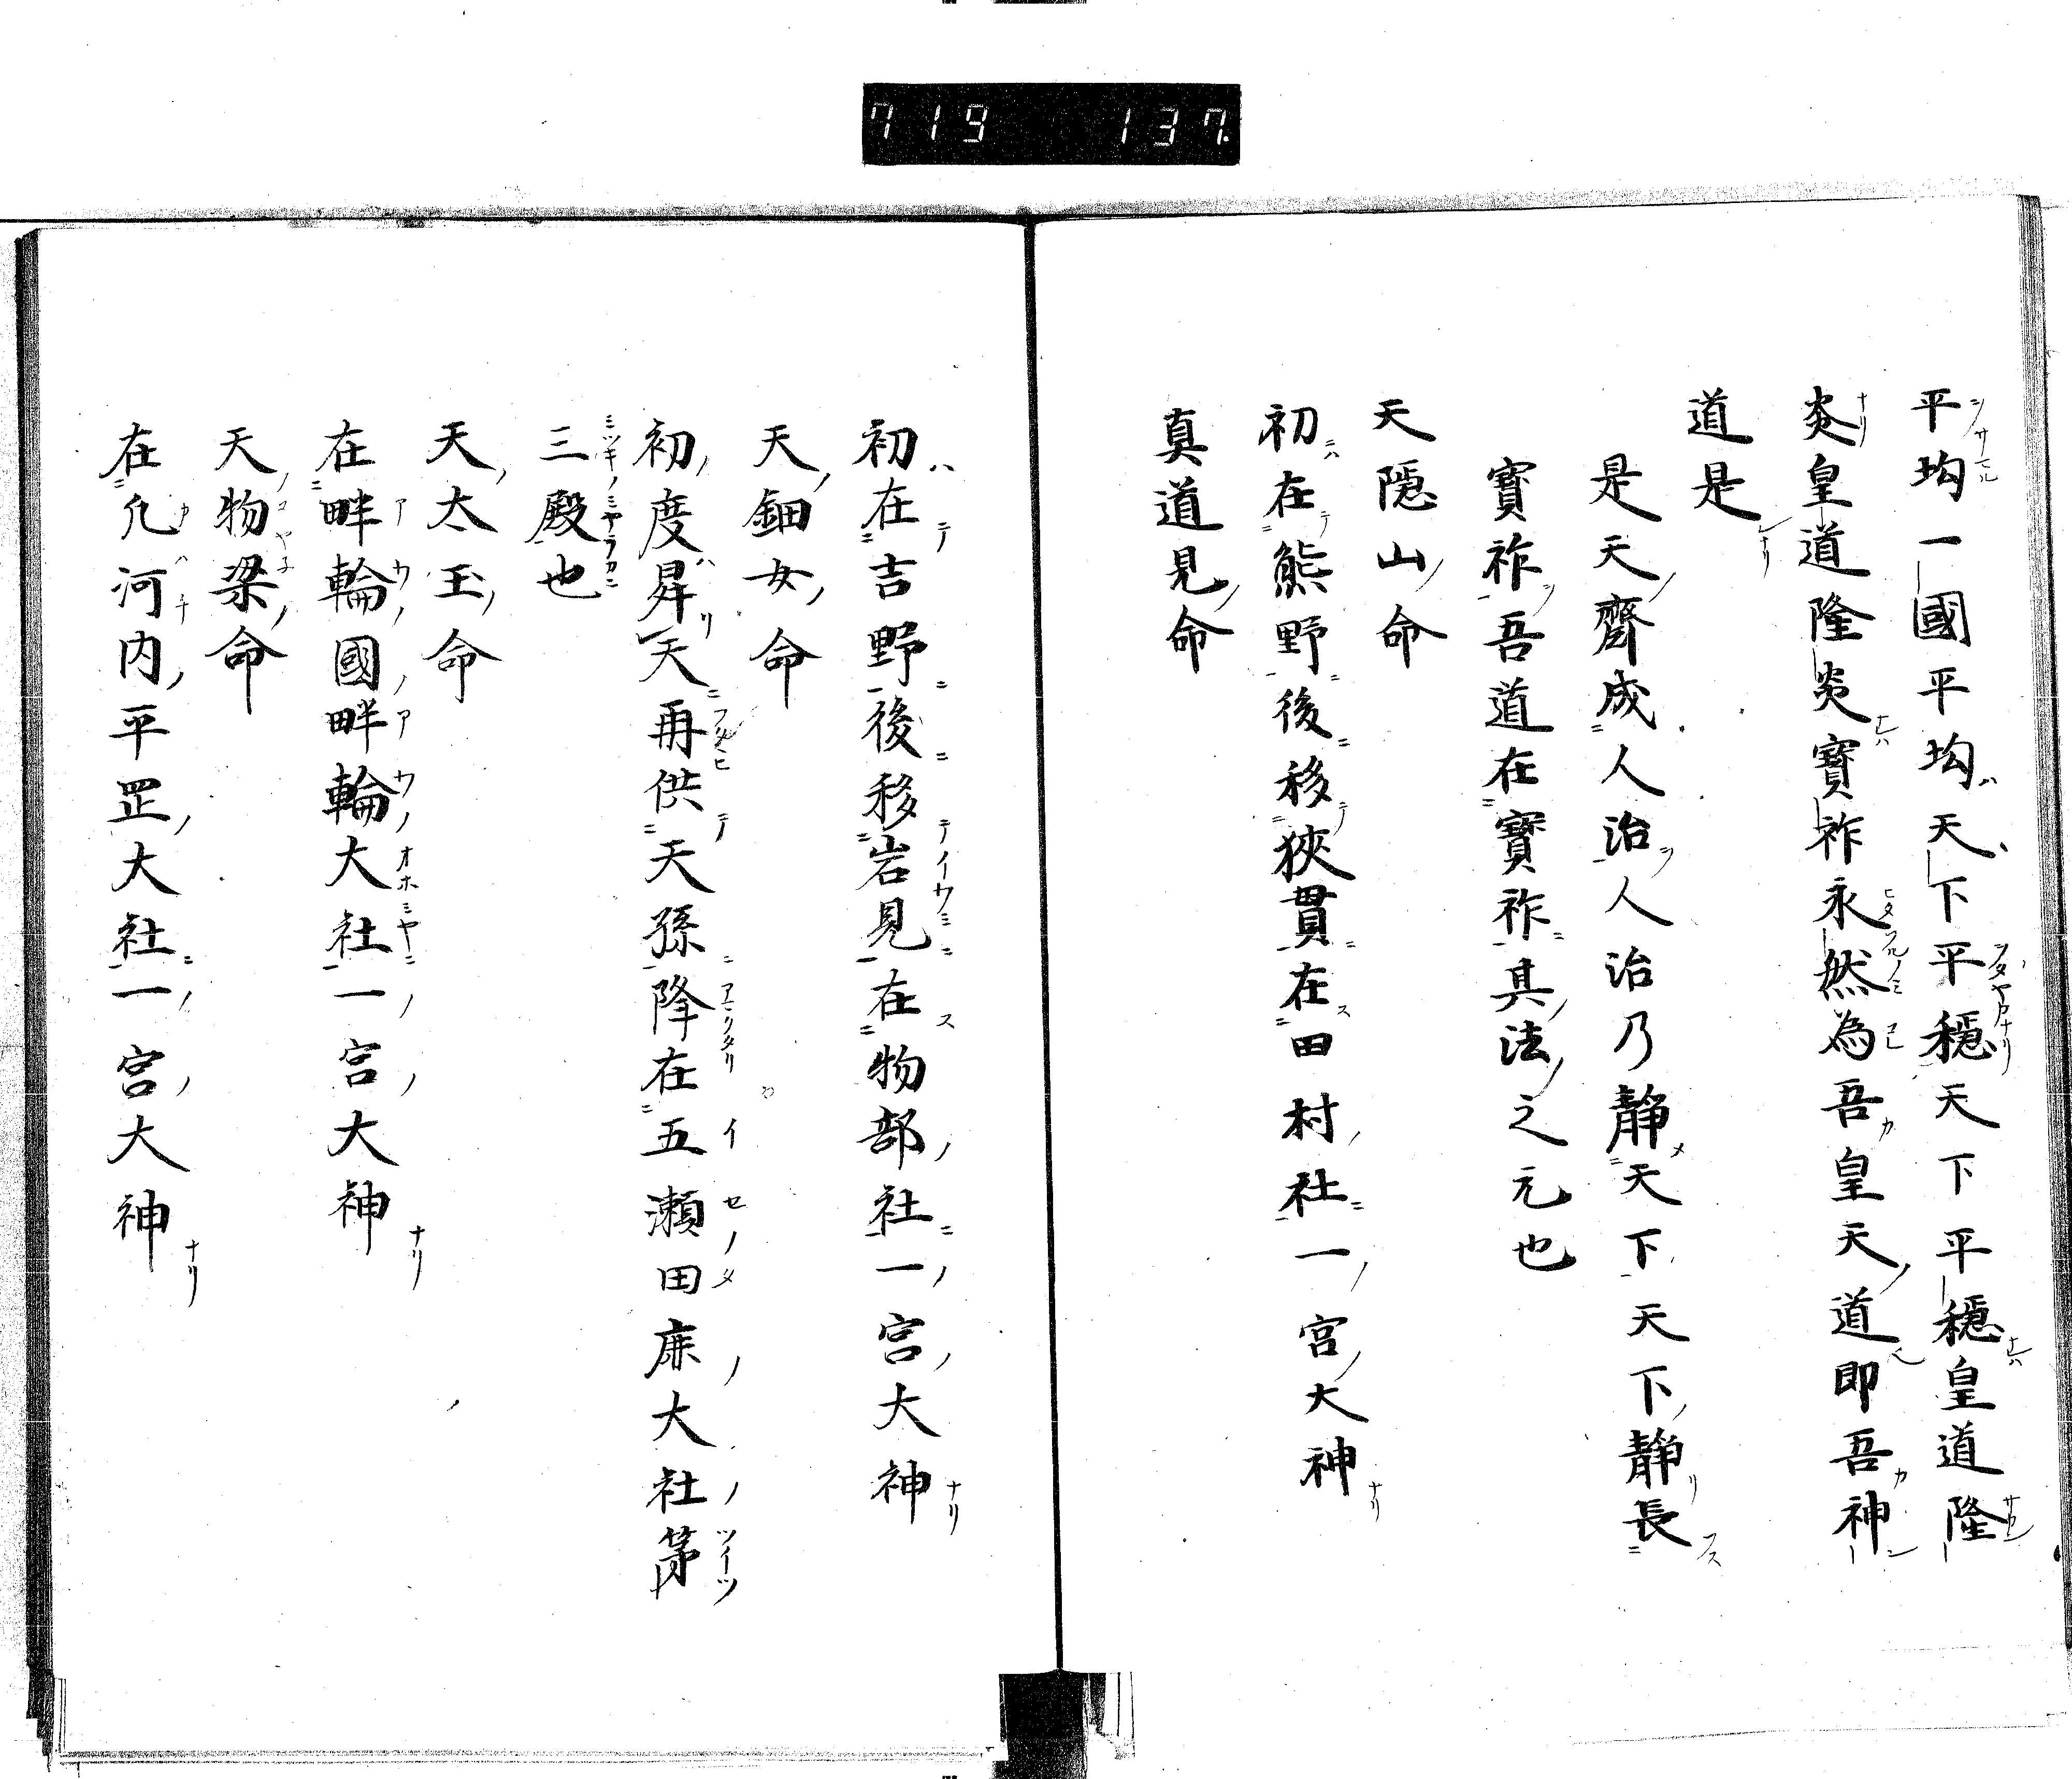 719 137
平均一國平均天下平穩天下平穩皇道隆
炎皇道隆炎寶祚永然為吾皇天道即吾神
道是
是天齋成人治人治乃靜天下天下靜長
寶祚吾道在寶祚其法之元也
天隱山命
初在熊野後移狹貫在田村社一宮大神
真道見命
初在吉野後移岩見在物部社一宮大神
天鈿女命
初度昇天再供天孫降在五瀬田麻大社第
三殿也
天太玉命
在畔輪國畔輪大社一宮大神
天物梁命
在凢河内平罡大社一宮大神